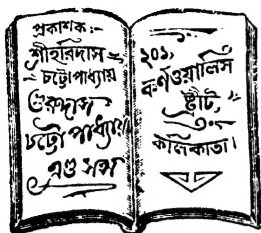 প্রকাশক :-
শ্রীহরিদাস
চট্টোপাধ্যায়
গুরুদাস
চট্টোপাধ্যায়
এণ্ড সন্স
২০১,
কর্ণওয়ালিস
ষ্ট্রীট,
কলিকাতা।